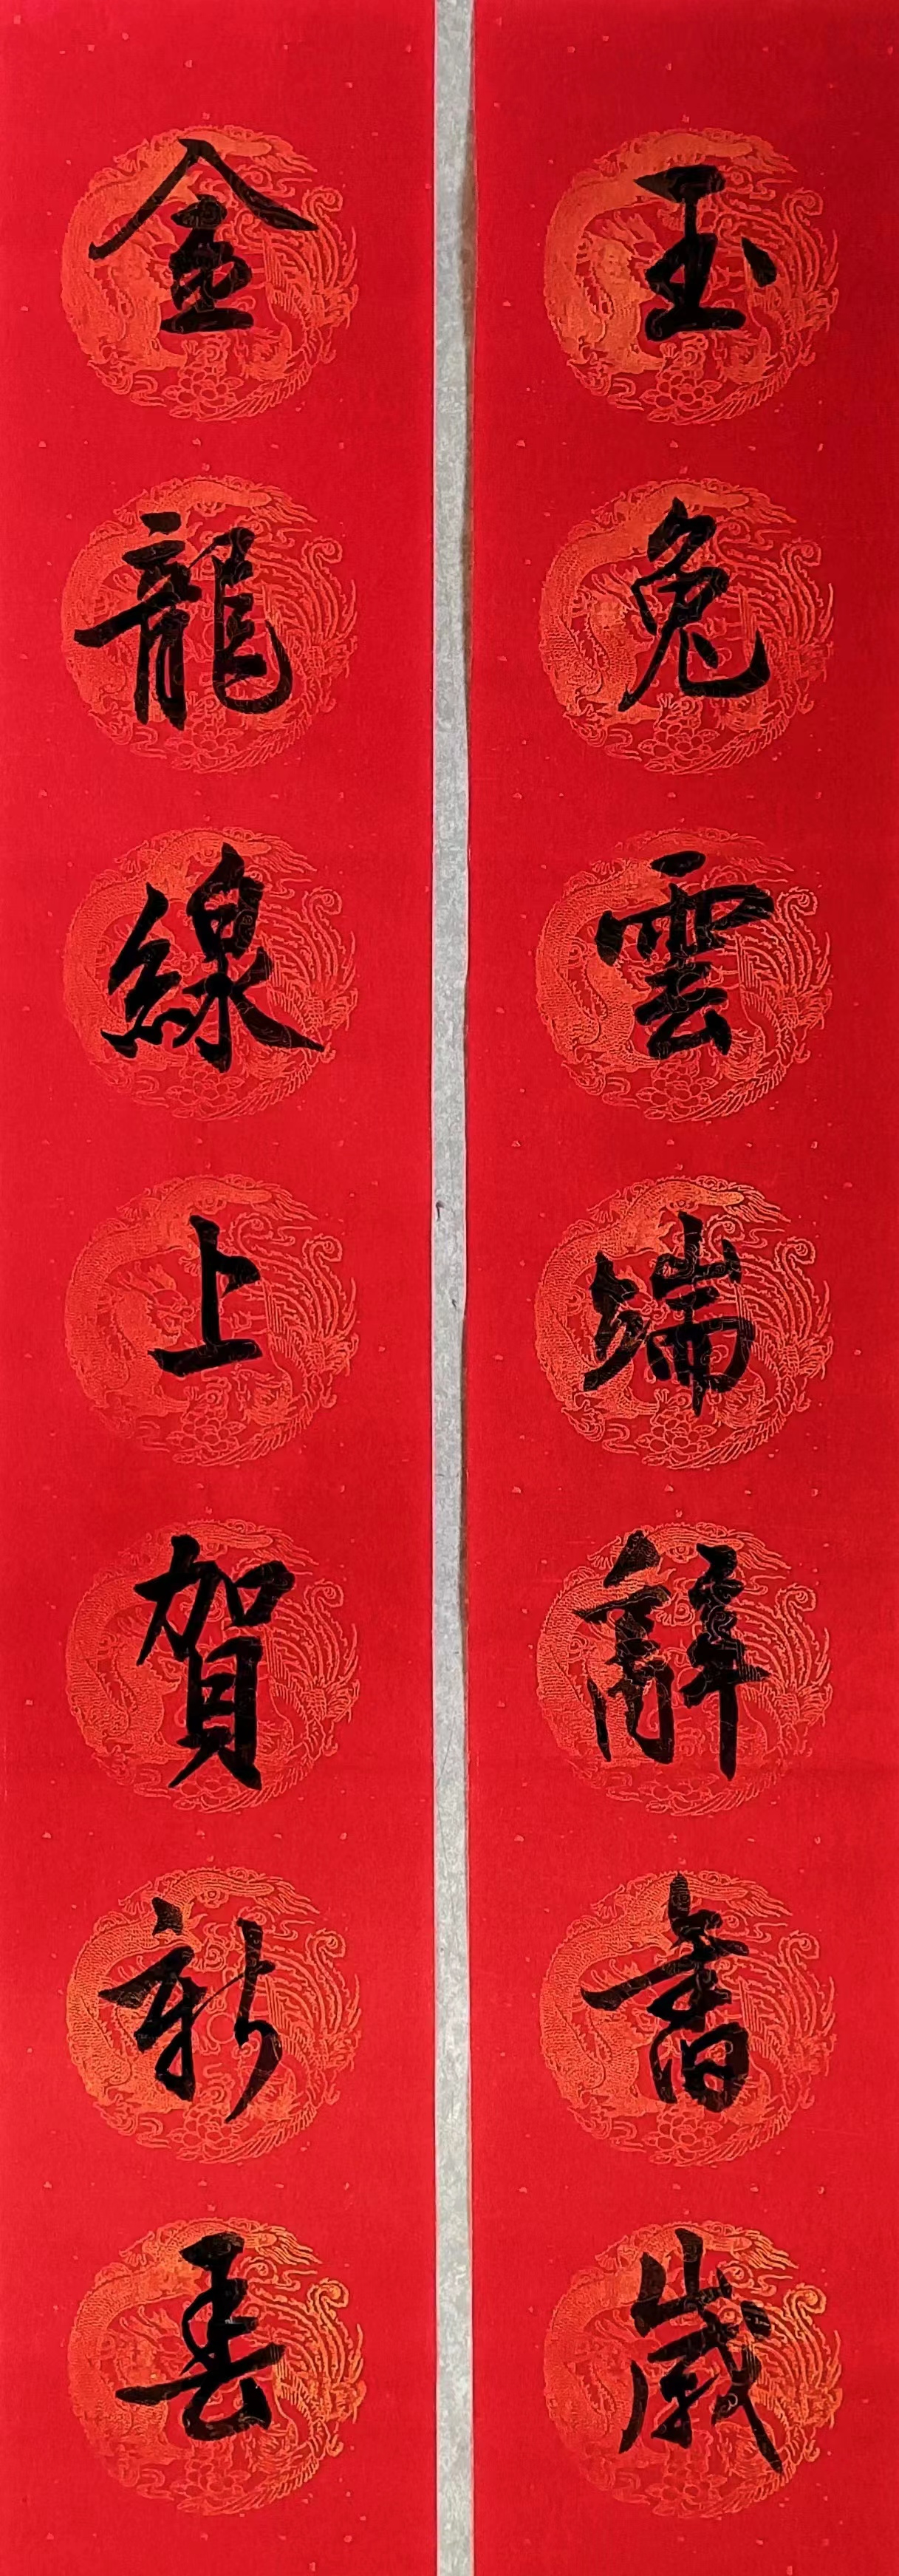 玉兔雲端辭舊歲
金龍線上賀新春